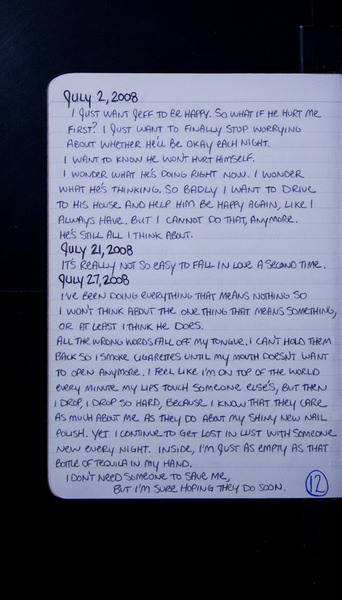 July 2, 2008
I JUST WANT JEFF TO BE HAPPY. SO WHAT IF HE HURT ME
FIRST? I JUST WANT TO FINALLY STOP WORRYING
ABOUT WHETHER HE'LL BE OKAY EACH NIGHT.
I WANT TO KNOW HE WON'T HURT HIMSELF.
I WONDER WHAT HE'S DOING RIGHT NOW. I WONDER
WHAT HE'S THINKING. SO BADLY I WANT TO DRIVE
TO HIS HOUSE AND HELP HIM BE HAPPY AGAIN, LIKE I
ALWAYS HAVE. BUT I CANNOT DO THAT, ANYMORE.
HE'S STILL ALL I THINK ABOUT.
July 21, 2008
IT'S REALLY NOT SO EASY TO FALL IN LOVE A SECOND TIME.
July 27, 2008
I'VE BEEN DOING EVERYTHING THAT MEANS NOTHING SO
I WON'T THINK ABOUT THE ONE THING THAT MEANS SOMETHING,
OR AT LEAST I THINK HE DOES.
ALL THE WRONG WORDS FALL OFF MY TONGUE. I CAN'T HOLD THEM
BACK SO I SMOKE CIGARETTES UNTIL MY MOUTH DOESN'T WANT
TO OPEN ANYMORE. I FEEL LIKE I'M ON TOP OF THE WORLD
EVERY MINUTE MY LIPS TOUCH SOMEONE ELSE'S, BUT THEN
I DROP, I DROP SO HARD, BECAUSE I KNOW THAT THEY CARE
AS MUCH ABOUT ME AS THEY DO ABOUT MY SHINY NEW NAIL
POLISH. YET I CONTINUE TO GET LOST IN LUST WITH SOMEONE
NEW EVERY NIGHT. INSIDE, I'M JUST AS EMPTY AS THAT
BOTTLE OF TEQUILA IN MY HAND.
I DON'T NEED SOMEONE TO SAVE ME,
BUT I'M SURE HOPING THEY DO SOON.
12